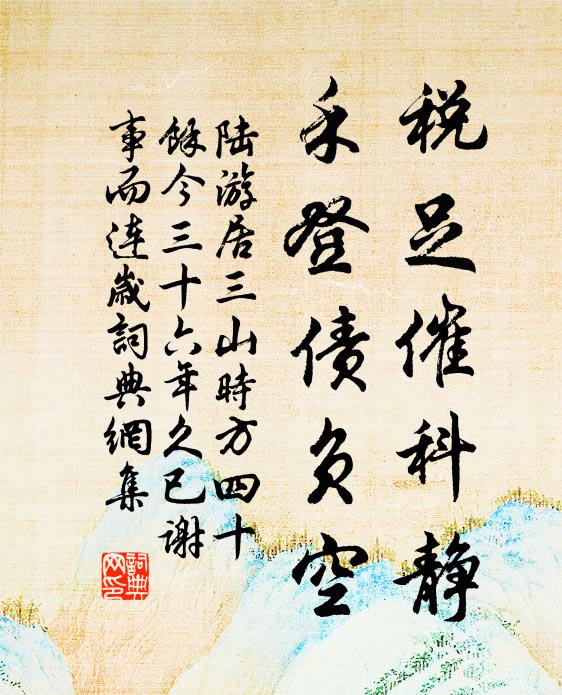 税足催科静
禾登债负空
陆游居三山時方四十
餘今三十六年久已谢
事而连歳詞典網集
詞典网印